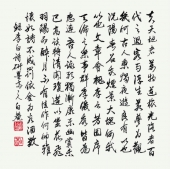 夫天地者萬物逆旅光陰者百
代之過客而浮生若夢為歡
幾何古人秉燭夜遊良有以也況
陽春召我以煙景大塊假我
以文章會桃李芳園序
天倫之樂事群季俊秀皆為
惠連吾人詠歌獨慚康樂幽賞未
已高談轉清開瓊筵以坐花飛
羽觴而醉月不有佳作何伸雅
懷如詩不成罰依金谷酒數
李白